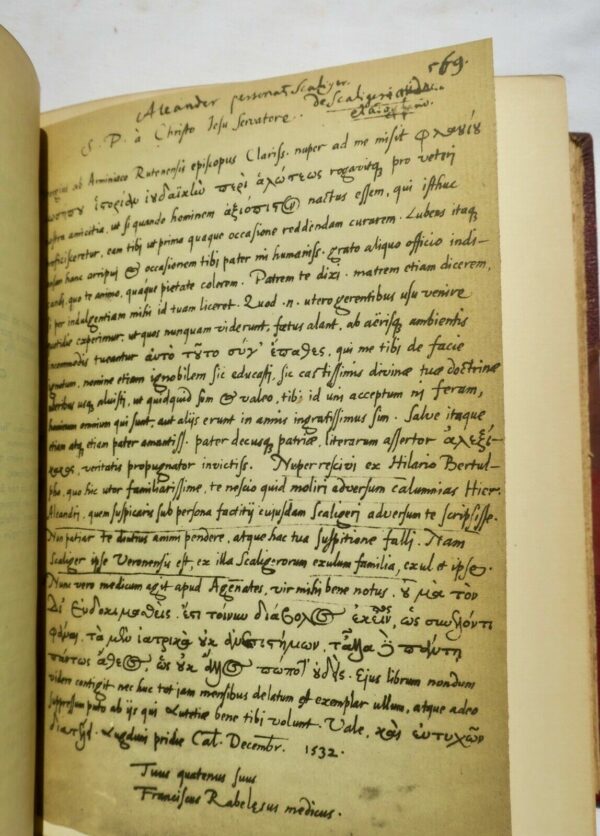 569.
Aleander personatꝰ Scaliger.
S. P. à Christo Jesu Servatore. de Scaligero
Georgius ab Arminiaco Rutenensis episcopus Clariss. nuper ad me misit φλαουίου
ἰωσήπου ἱστορίαν ἰουδαϊκὴν περὶ ἁλώσεως rogavitq, pro veteri
nostra amicitia, ut si quando hominem ἀξιόπιστον nactus essem, qui isthuc
proficisceretur, eam tibi ut prima quaque occasione reddendam curarem. Lubens itaq,
ansam hanc arripui & occasionem tibi pater mi humaniss. grato aliquo officio indi-
candi, quo te animo, quaque pietate colerem. Patrem te dixi. matrem etiam dicerem,
si per indulgentiam mihi id tuam liceret. Quod .n. utero gerentibus usu venire
quotidie experimur, ut quos nunquam viderunt, fœtus alant, ab aërisq, ambientis
incommodis tueantur αὐτὸ τοῦτο σύγ' ἔπαθες, qui me tibi de facie
ignotum, nomine etiam ignobilem sic educasti, sic castissimis divinæ tuæ doctrinæ
uberibus usq, aluisti, ut quidquid sum & valeo, tibi id uni acceptum ni feram,
hominum omnium qui sunt, aut aliis erunt in annis ingratissimus sim. Salve itaque
etiam atq, etiam pater amantiss. pater decusque patriæ, literarum assertor ἀλεξί-
κακος, veritatis propugnator invictiss. Nuper rescivi ex Hilario Bertul-
pho, quo hic utor familiarissime, te nescio quid moliri adversum calumnias Hier.
Aleandri, quem suspicaris sub persona factitii cujusdam Scaligeri adversum te scripsisse.
Non patiar te diutius animi pendere, atque hac tua suspitione falli. Nam
Scaliger ipse Veronensis est, ex illa Scaligerorum exulum familia, exul et ipse.
Nunc vero medicum agit apud Agenates, vir mihi bene notus. οὐ μὰ τὸν
Δί' εὐδοκιμαθεὶς. ἔστι τοίνυν διάβολος ἐκεῖνος, ὡς συνελόντι
φάναι, τὰ μὲν ἰατρικὰ οὐκ ἀνεπιστήμων, τἆλλα δὲ πάντη
πάντως ἄθεος, ὡς οὐκ ἄλλος πώποτ' οὐδείς. Ejus librum nondum
videre contigit nec huc tot jam mensibus delatum est exemplar ullum, atque adeo
suppressum puto ab iis qui Lutetiæ bene tibi volunt. Vale, καὶ εὐτυχῶν
διατέλει. Lugduni pridie Cal. Decembr. 1532.
Tuus quatenus suus
Franciscus Rabelæsus medicus.